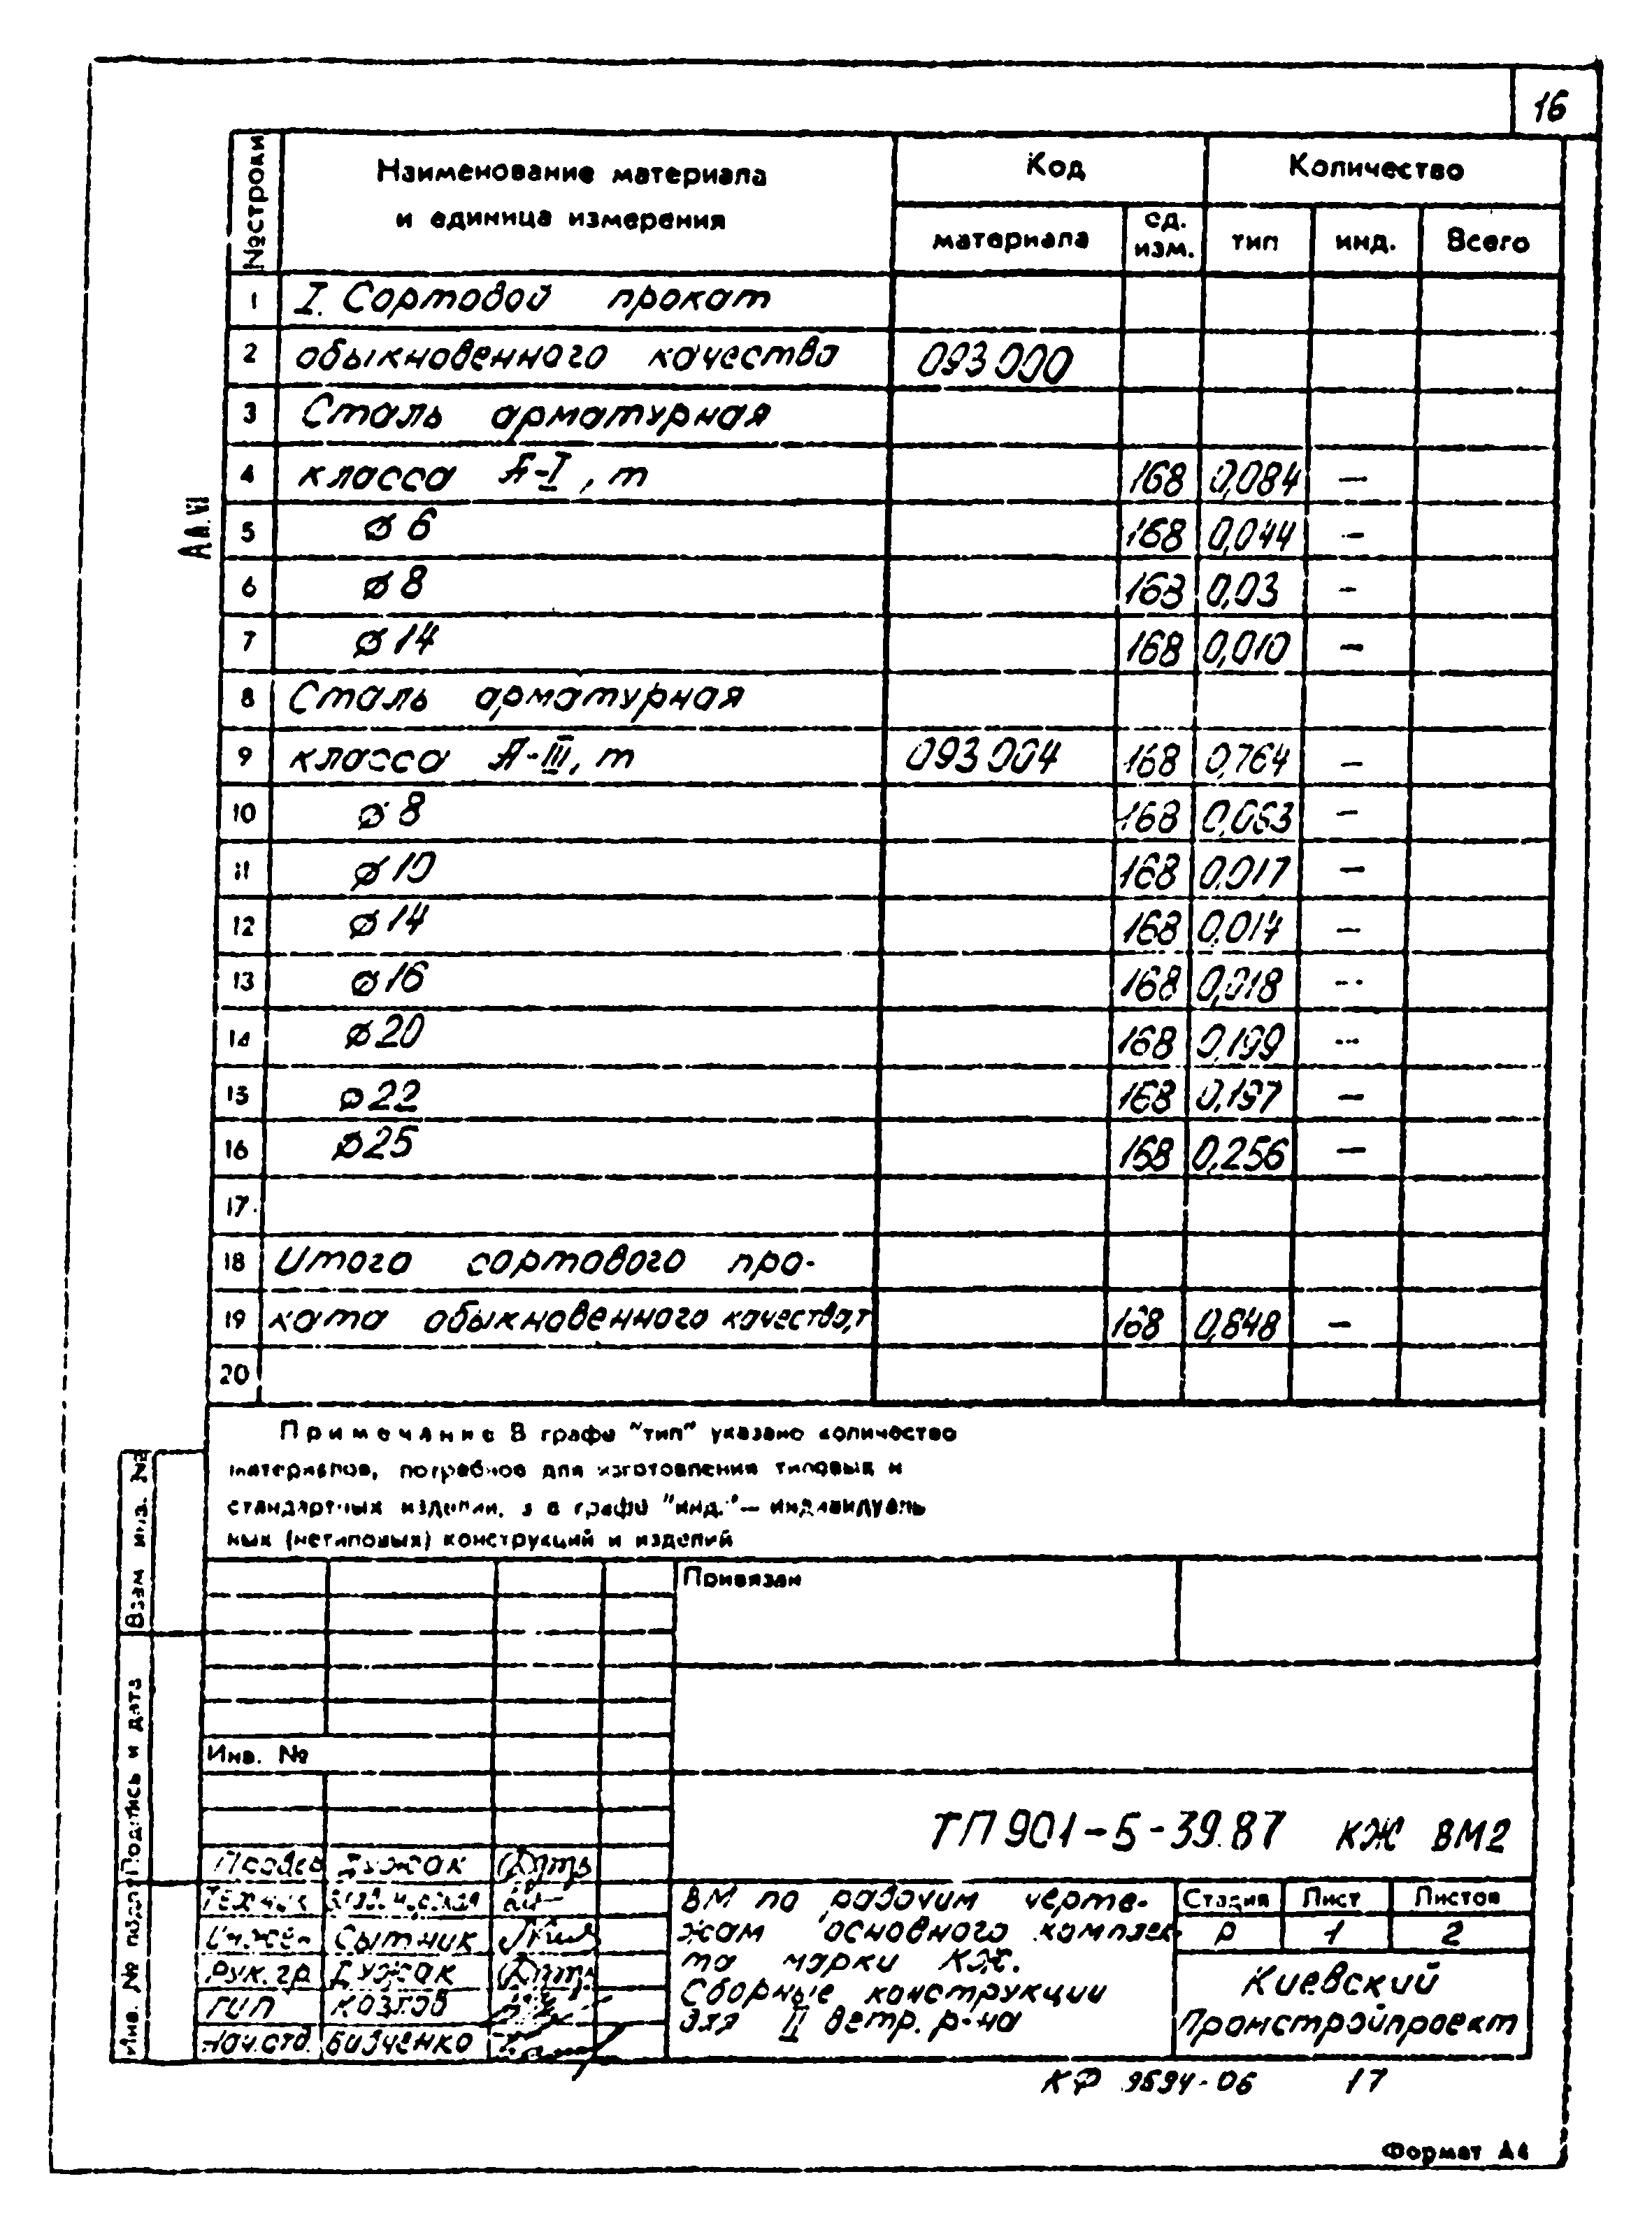 16
№ строки
Наименование материала
и единица измерения
Код
Количество
материала
ед.
изм.
тип
инд.
Всего
1 I. Сортовой прокат
2 обыкновенного качества 093000
3 Сталь арматурная
4 класса А-I, т 168 0,084 —
5 ø 6 168 0,044 —
6 ø 8 168 0,03 —
7 ø 14 168 0,010 —
8 Сталь арматурная
9 класса А-III, т 093004 168 0,764 —
10 ø 8 168 0,063 —
11 ø 10 168 0,017 —
12 ø 14 168 0,014 —
13 ø 16 168 0,018 —
14 ø 20 168 0,199 —
15 ø 22 168 0,197 —
16 ø 25 168 0,256 —
17
18 Итого сортового про-
19 ката обыкновенного качества, т 168 0,848 —
20
Ал. VI
Примечание В графе "тип" указано количество
материалов, потребное для изготовления типовых и
стандартных изделий, а в графе "инд." — индивидуаль
ных (нетиповых) конструкций и изделий
Привязан
Инв. №
Взам инв. №
Подпись и дата
Инв. № подл.
ТП 901-5-39.87 КЖ ВМ2
Провер Дужак
Техник
Инжен Сытник
Рук. гр. Дужак
ГИП Козлов
Нач. отд.
ВМ по рабочим черте-
жам основного комплек-
та марки КЖ.
Сборные конструкции
для II ветр. р-на
Стадия Лист Листов
Р 1 2
Киевский
Промстройпроект
КФ 9594-06 17
Формат А4